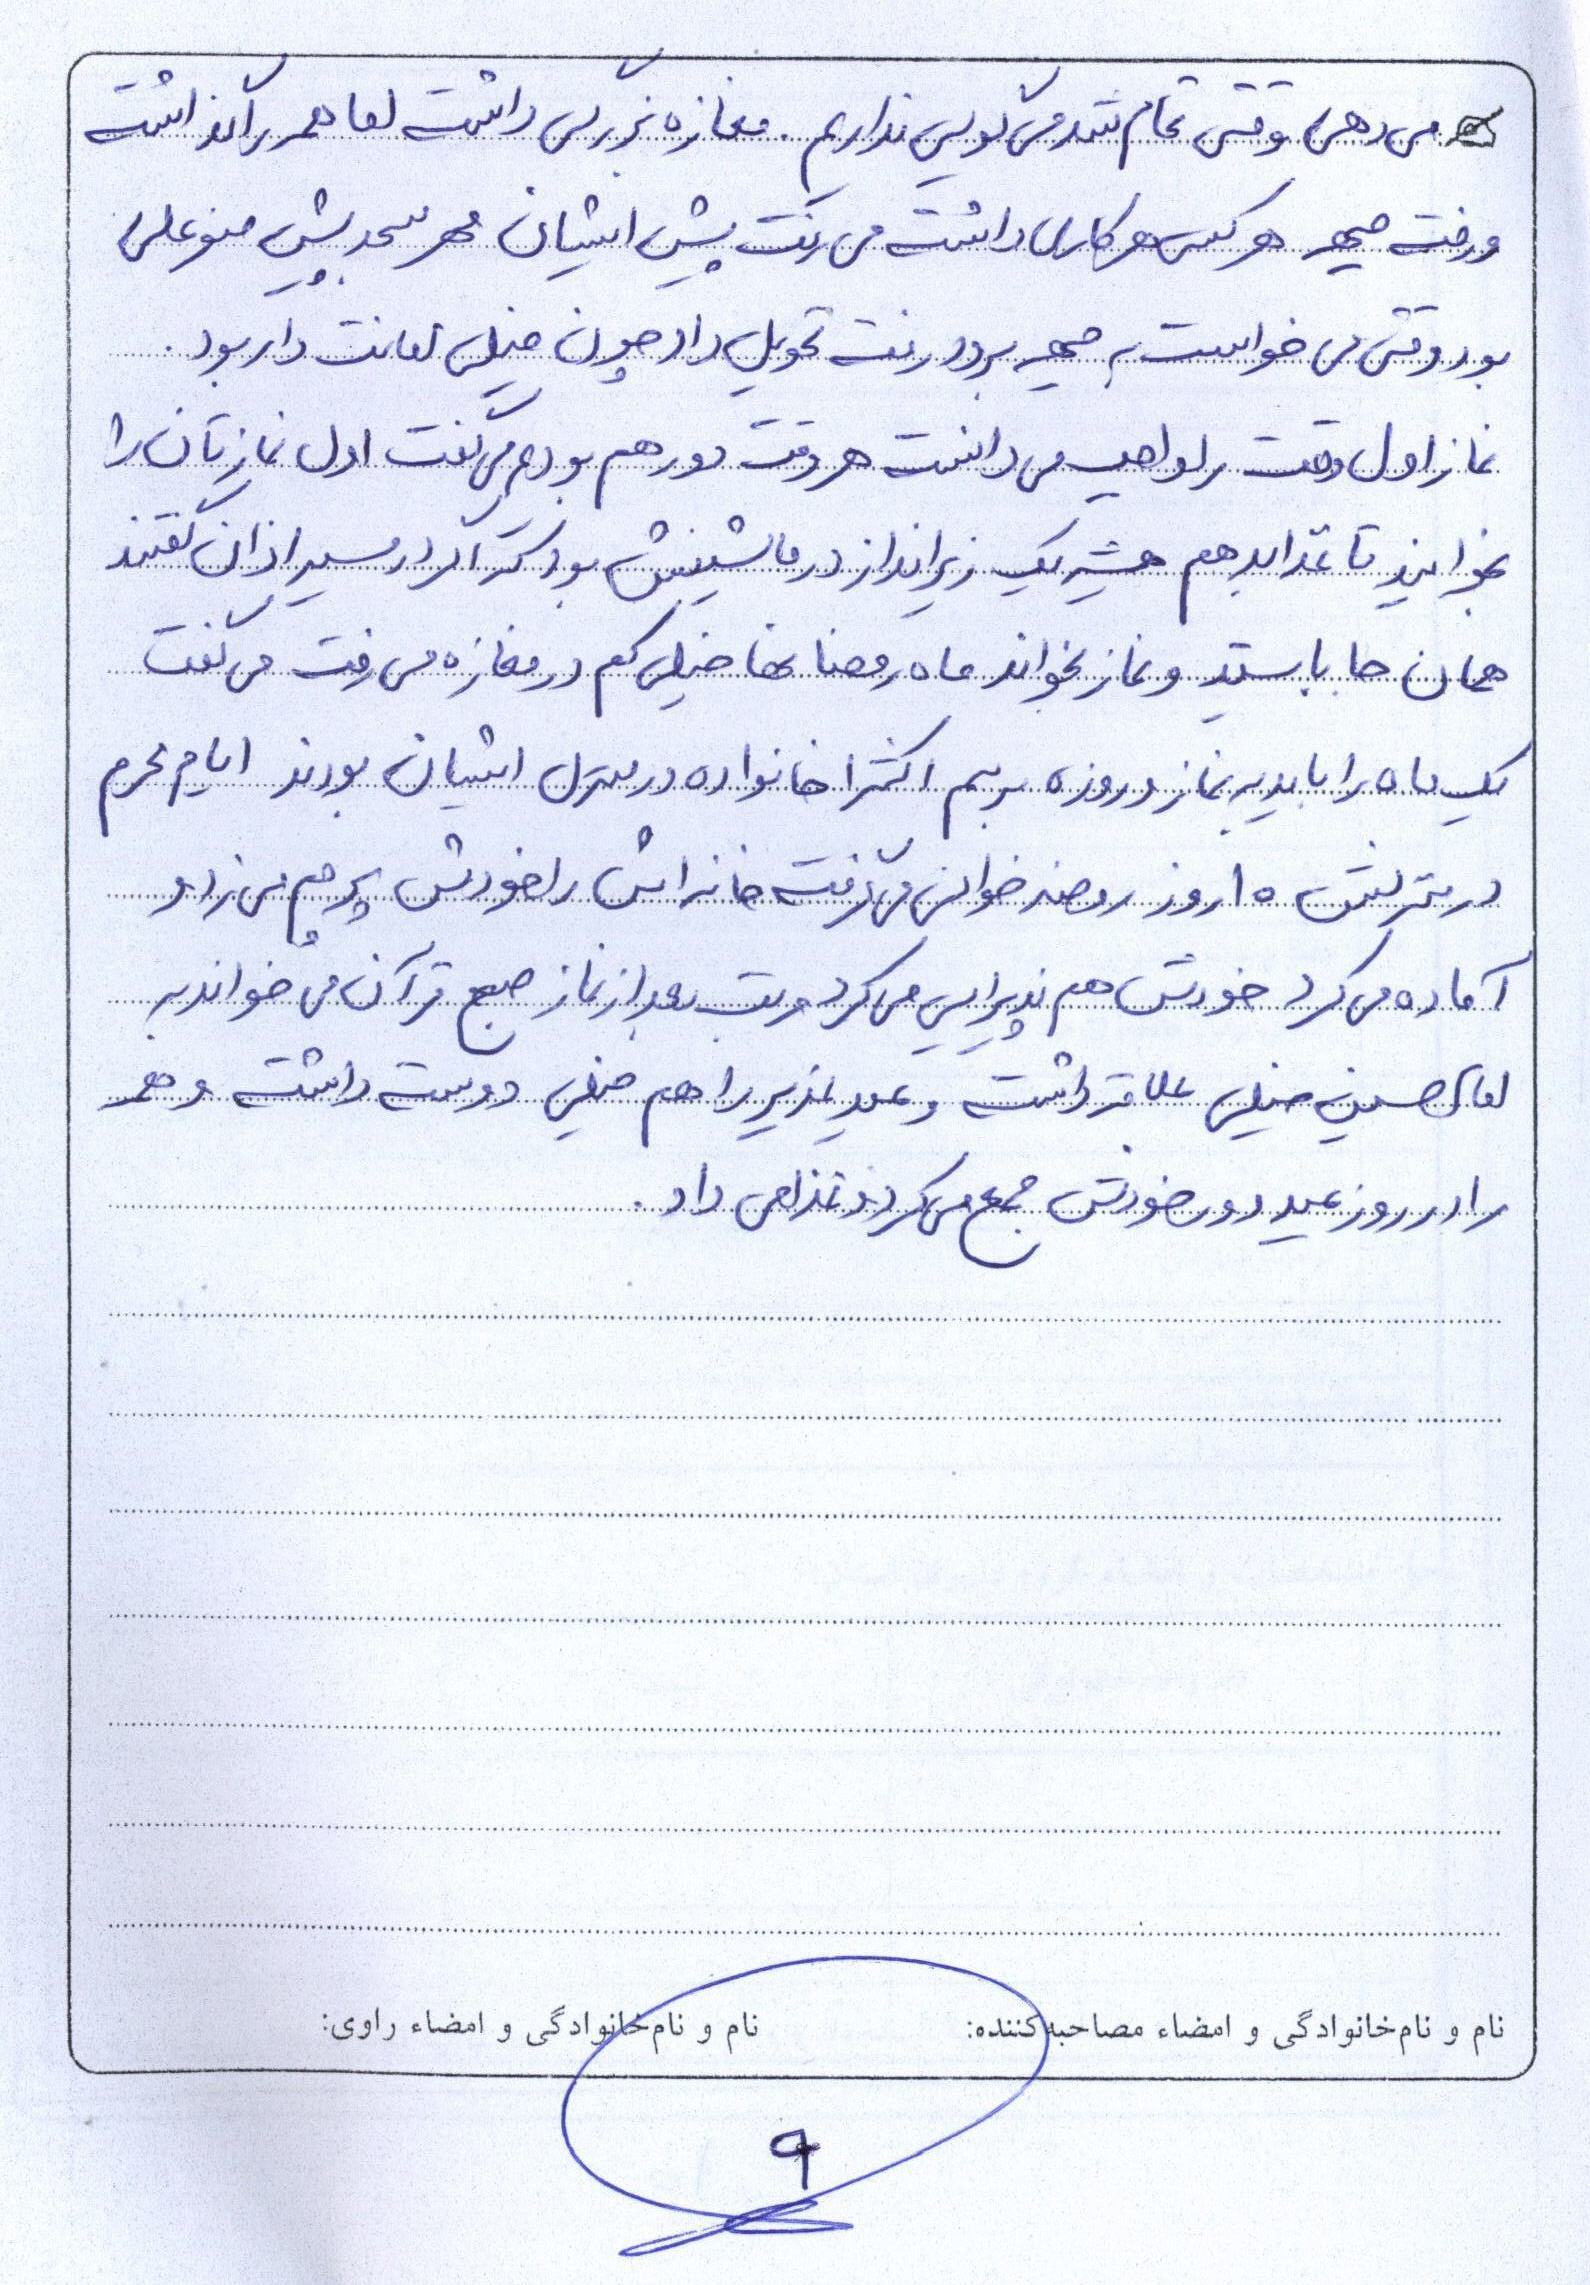 می دهی وقتی تمام شد می گویی نداریم. مغازه بزرگی داشت اما همه را گذاشت
و رفت جبهه هر کس هر کاری داشت می رفت پیش ایشان مهر مسجد پیش منوعلی
بود وقتی می خواست به جبهه برود رفت تحویل داد چون خیلی امانت دار بود.
نماز اول وقت را واجب می دانست هر وقت دور هم بودیم می گفت اول نمازتان را
بخوانید تا غذا بدهم همیشه یک زیرانداز در ماشینش بود که اگر در مسیر اذان گفتند
همان جا بایستد و نماز بخواند ماه رمضانها خیلی کم در مغازه می رفت می گفت
یک ماه را باید به نماز و روزه برسم اکثرا خانواده در منزل ایشان بودند ایام محرم
در منزلش ۱۰ روز روضه خوانی می گرفت خانه اش را خودش پرچم می زد و
آماده می کرد خودش هم پذیرایی می کرد مرتب بعد از نماز صبح قرآن می خواند به
امام حسین خیلی علاقه داشت و عید غدیر را هم خیلی دوست داشت و همه
را در روز عید دور خودش جمع می کرد و غذا می داد.
نام و نام‌خانوادگی و امضاء مصاحبه‌کننده:
نام و نام‌خانوادگی و امضاء راوی:
۹